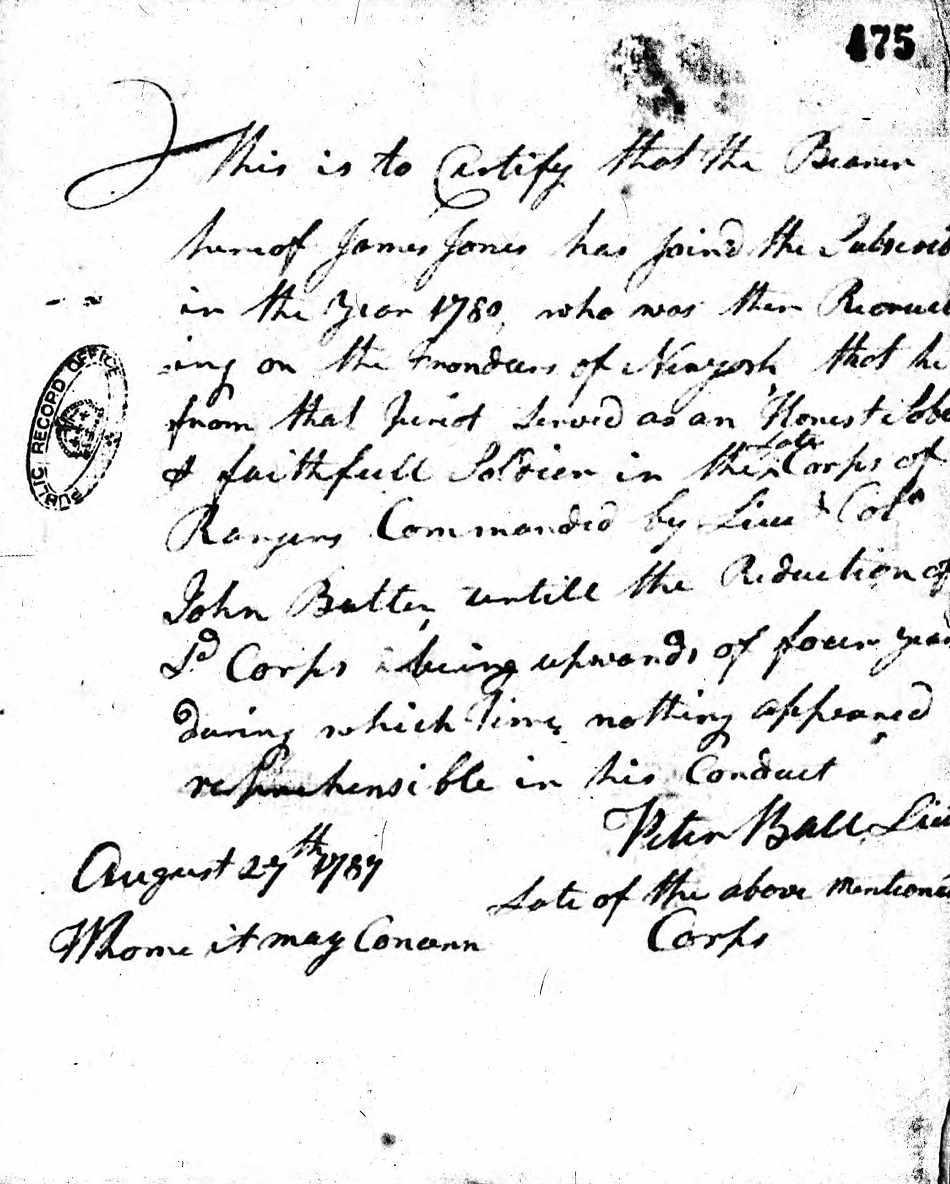 475
This is to Certify that the Bearer
hereof James Jones has joind the Subscrib
in the Year 1780, who was then Recruit
ing on the frondeers of Newyork, that he
from that Periot Served as an Honest Sobe
& faithfull Soldier in the Late Corps of
Rangers Commanded by Lieut Colo
John Butler, untill the Reduction of
Sd Corps being upwards of four year
During which time, nothing appeared
reprehensible in his Conduct
Peter Ball Lieu
August 27th 1787
Late of the above mentioned
Whome it may Concern
Corps
PUBLIC RECORD OFFICE